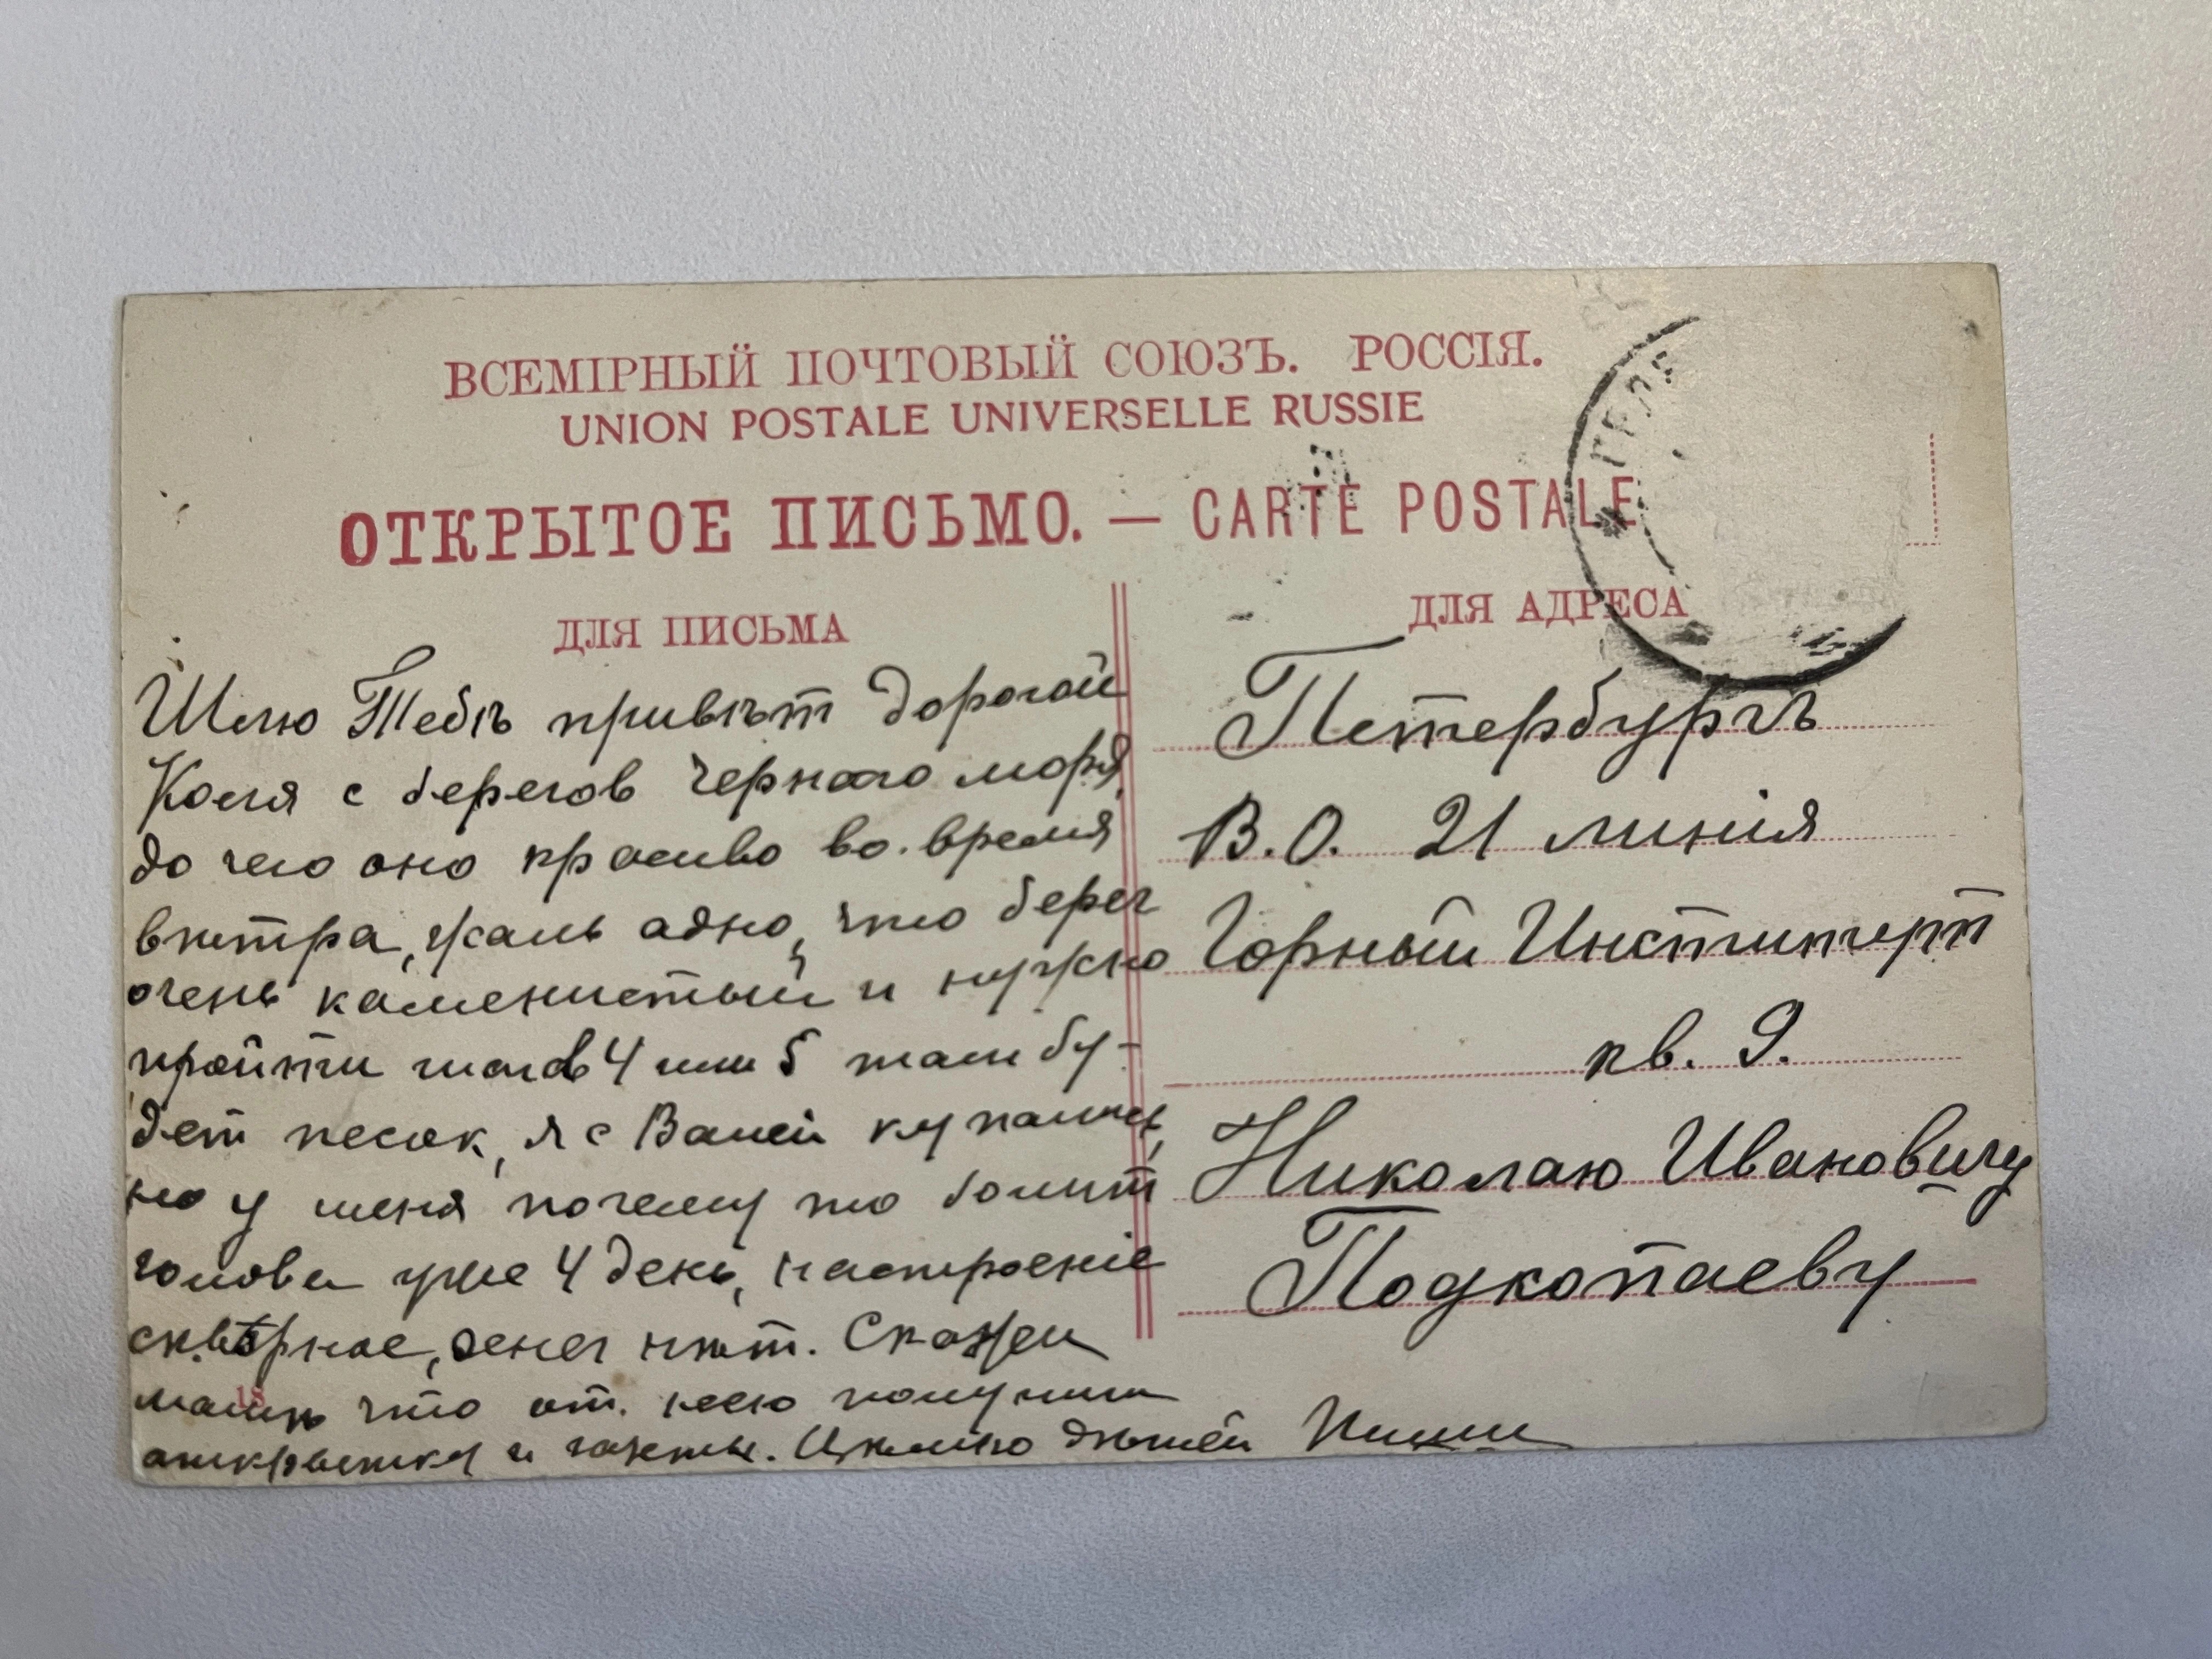 ВСЕМІРНЫЙ ПОЧТОВЫЙ СОЮЗЪ. РОССІЯ.
UNION POSTALE UNIVERSELLE RUSSIE
ОТКРЫТОЕ ПИСЬМО. — CARTE POSTALE
ДЛЯ ПИСЬМА
Шлю Тебѣ привѣт дорогой
Коля с берегов Чернаго моря,
до чего оно красиво во время
вѣтра, жаль адно, что берег
очень каменистый и нужно
пройти шагов 4 или 5 там бу-
дет песок, я с Ваней купались,
но у меня почему то болит
голова уже 4 день, настроеніе
скверное, денег нѣт. Скажи
18
мамѣ что от нее получили
аткрытку и газеты. Цѣлую Пиши
ДЛЯ АДРЕСА
Петербургъ
В.О. 21 линія
Горный Институт
кв. 9.
Николаю Ивановичу
Подкопаеву